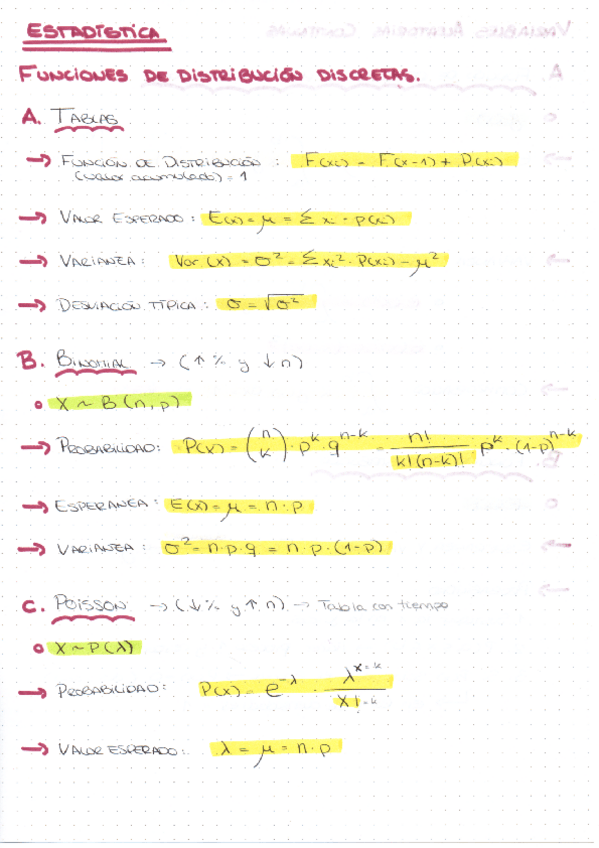 ESTADÍSTICA
FUNCIONES DE DISTRIBUCIÓN DISCRETAS.
A. TABLAS
→ FUNCIÓN DE DISTRIBUCIÓN : F(xi) = F(x-1) + P(xi)
(valor acumulado) = 1
→ VALOR ESPERADO : E(x) = μ = Σ xi · p(xi)
→ VARIANZA : Var (x) = σ² = Σ xi² · P(xi) - μ²
→ DESVIACIÓN TÍPICA : σ = √σ²
B. BINOMIAL → (↑ % y ↓ n)
• X ~ B (n, p)
→ PROBABILIDAD: P(x) = (n k) · p^k · q^(n-k) = n! / k! (n-k)! p^k · (1-p)^(n-k)
→ ESPERANZA : E(x) = μ = n · p
→ VARIANZA : σ² = n · p · q = n · p · (1-p)
C. POISSON → (↓ % y ↑ n) → Tabla con tiempo
• X ~ P (λ)
→ PROBABILIDAD: P(x) = e^-λ · λ^(x=k) / x! =k
→ VALOR ESPERADO : λ = μ = n · p